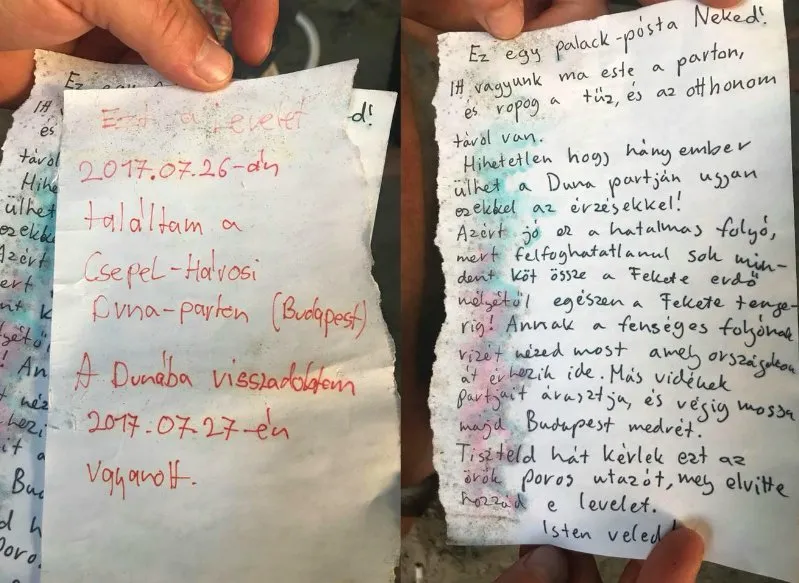 Ezt a levelet
2017.07.26-án
találtam a
Csepel-Hárosi
Duna-parton (Budapest)
A Dunába visszadobtam
2017.07.27-én
ugyanott.
Ez egy palack-pósta Neked!
Itt vagyunk ma este a parton,
és ropog a tűz, és az otthonom
távol van.
Hihetetlen hogy hány ember
ülhet a Duna partján ugyan
ezekkel az érzésekkel!
Azért jó ez a hatalmas folyó,
mert felfoghatatlanul sok min-
dent köt össze a Fekete erdő
mélyétől egészen a Fekete tenge-
rig! Annak a fenséges folyónak
vizét nézed most amely országokon
át érkezik ide. Más vidékek
partjait árasztja, és végig mossa
majd Budapest medrét.
Tiszteld hát kérlek ezt az
örök poros utazót, mely elvitte
hozzád e levelet.
Isten veled!